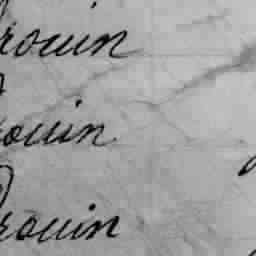 rouin
rouin
rouin